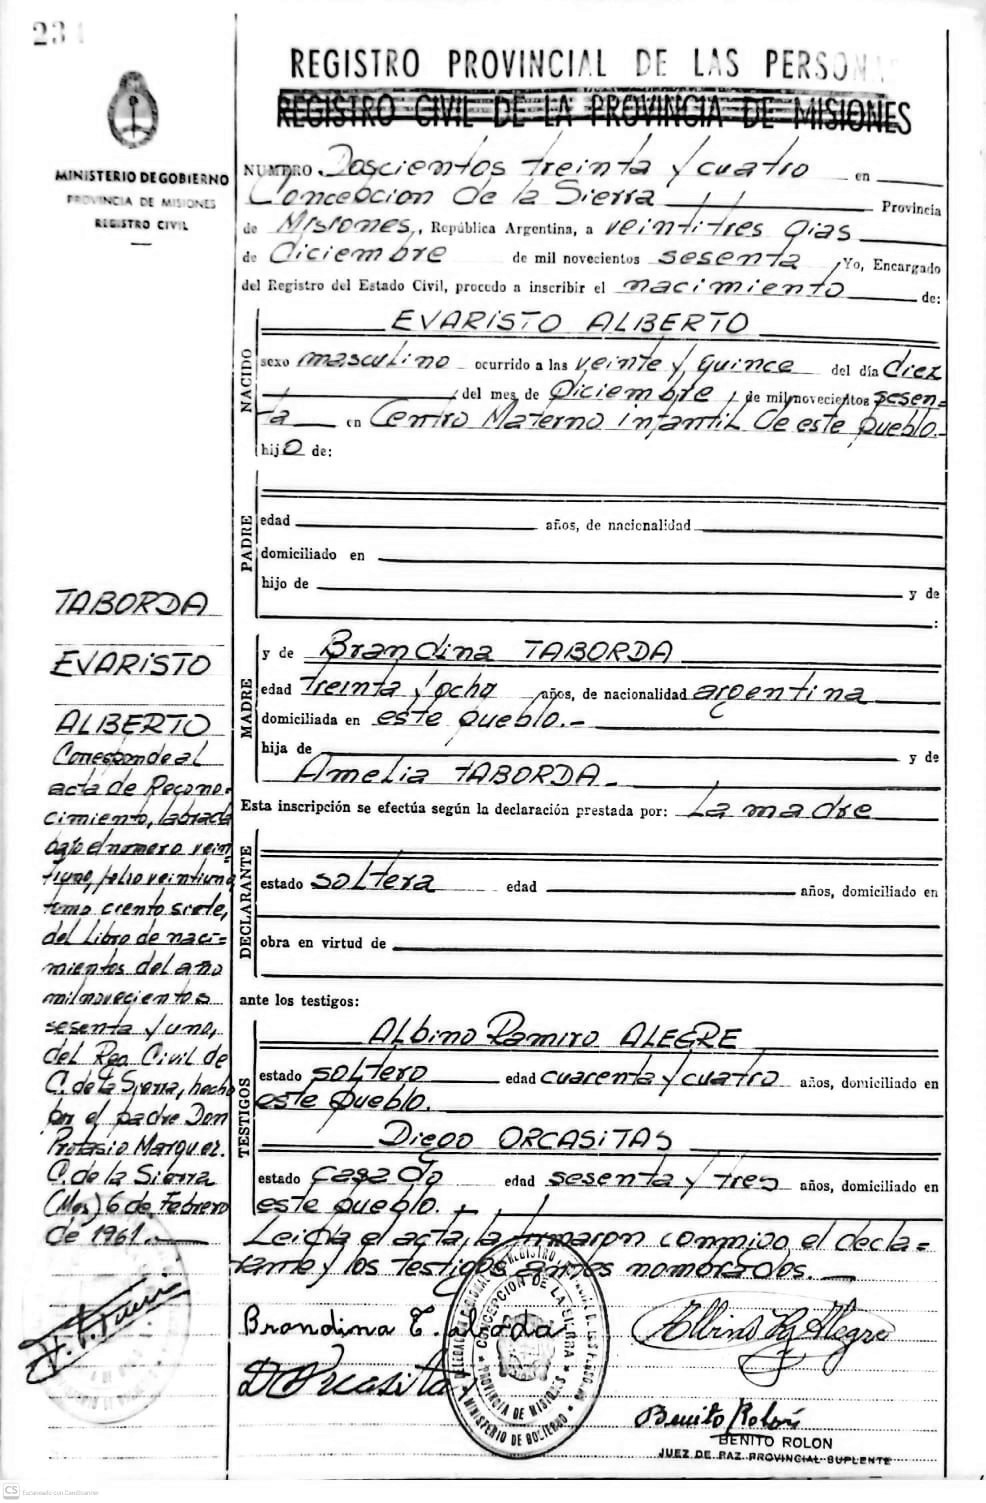 234
REGISTRO PROVINCIAL DE LAS PERSONAS
REGISTRO CIVIL DE LA PROVINCIA DE MISIONES
MINISTERIO DE GOBIERNO
PROVINCIA DE MISIONES
REGISTRO CIVIL
NUMERO Doscientos treinta y cuatro en
Concepcion de la Sierra Provincia
de Misiones, República Argentina, a veintitres dias
de diciembre de mil novecientos sesenta, Yo, Encargado
del Registro del Estado Civil, procedo a inscribir el nacimiento de:
NACIDO
EVARISTO ALBERTO
sexo masculino ocurrido a las veinte y quince del día diez
del mes de Diciembre, de mil novecientos sesen=
ta en Centro Materno infantil de este pueblo.-
hijo de:
PADRE
edad años, de nacionalidad
domiciliado en
hijo de y de
:
MADRE
y de Brandina TABORDA
edad treinta y ocho años, de nacionalidad argentina
domiciliada en este pueblo.-
hija de y de
Amelia TABORDA.-
Esta inscripción se efectúa según la declaración prestada por: La madre
DECLARANTE
estado soltera edad años, domiciliado en
obra en virtud de
ante los testigos:
TESTIGOS
Albino Ramiro ALEGRE
estado soltero edad cuarenta y cuatro años, domiciliado en
este pueblo.
Diego ORCASITAS
estado casado edad sesenta y tres años, domiciliado en
este pueblo.
Leida el acta, la firmaron conmigo el decla=
rante y los testigos antes nombrados.-
TABORDA
EVARISTO
ALBERTO
Corresponde al
acta de Recono-
cimiento, labrada
bajo el numero vein
tiuno, folio veintiuno
tomo ciento siete,
del Libro de naci=
mientos del año
mil novecientos
sesenta y uno,
del Reg. Civil de
C. de la Sierra, hecho
por el padre Don
Protasio Marquez.
C. de la Sierra
(Mns) 6 de Febrero
de 1961.-
Brandina Taborda
Albino R. Alegre
D Orcasitas
CONCEPCION DE LA SIERRA
PROVINCIA DE MISIONES
MINISTERIO DE GOBIERNO
Benito Rolon
BENITO ROLON
JUEZ DE PAZ PROVINCIAL SUPLENTE
CS Escaneado con CamScanner